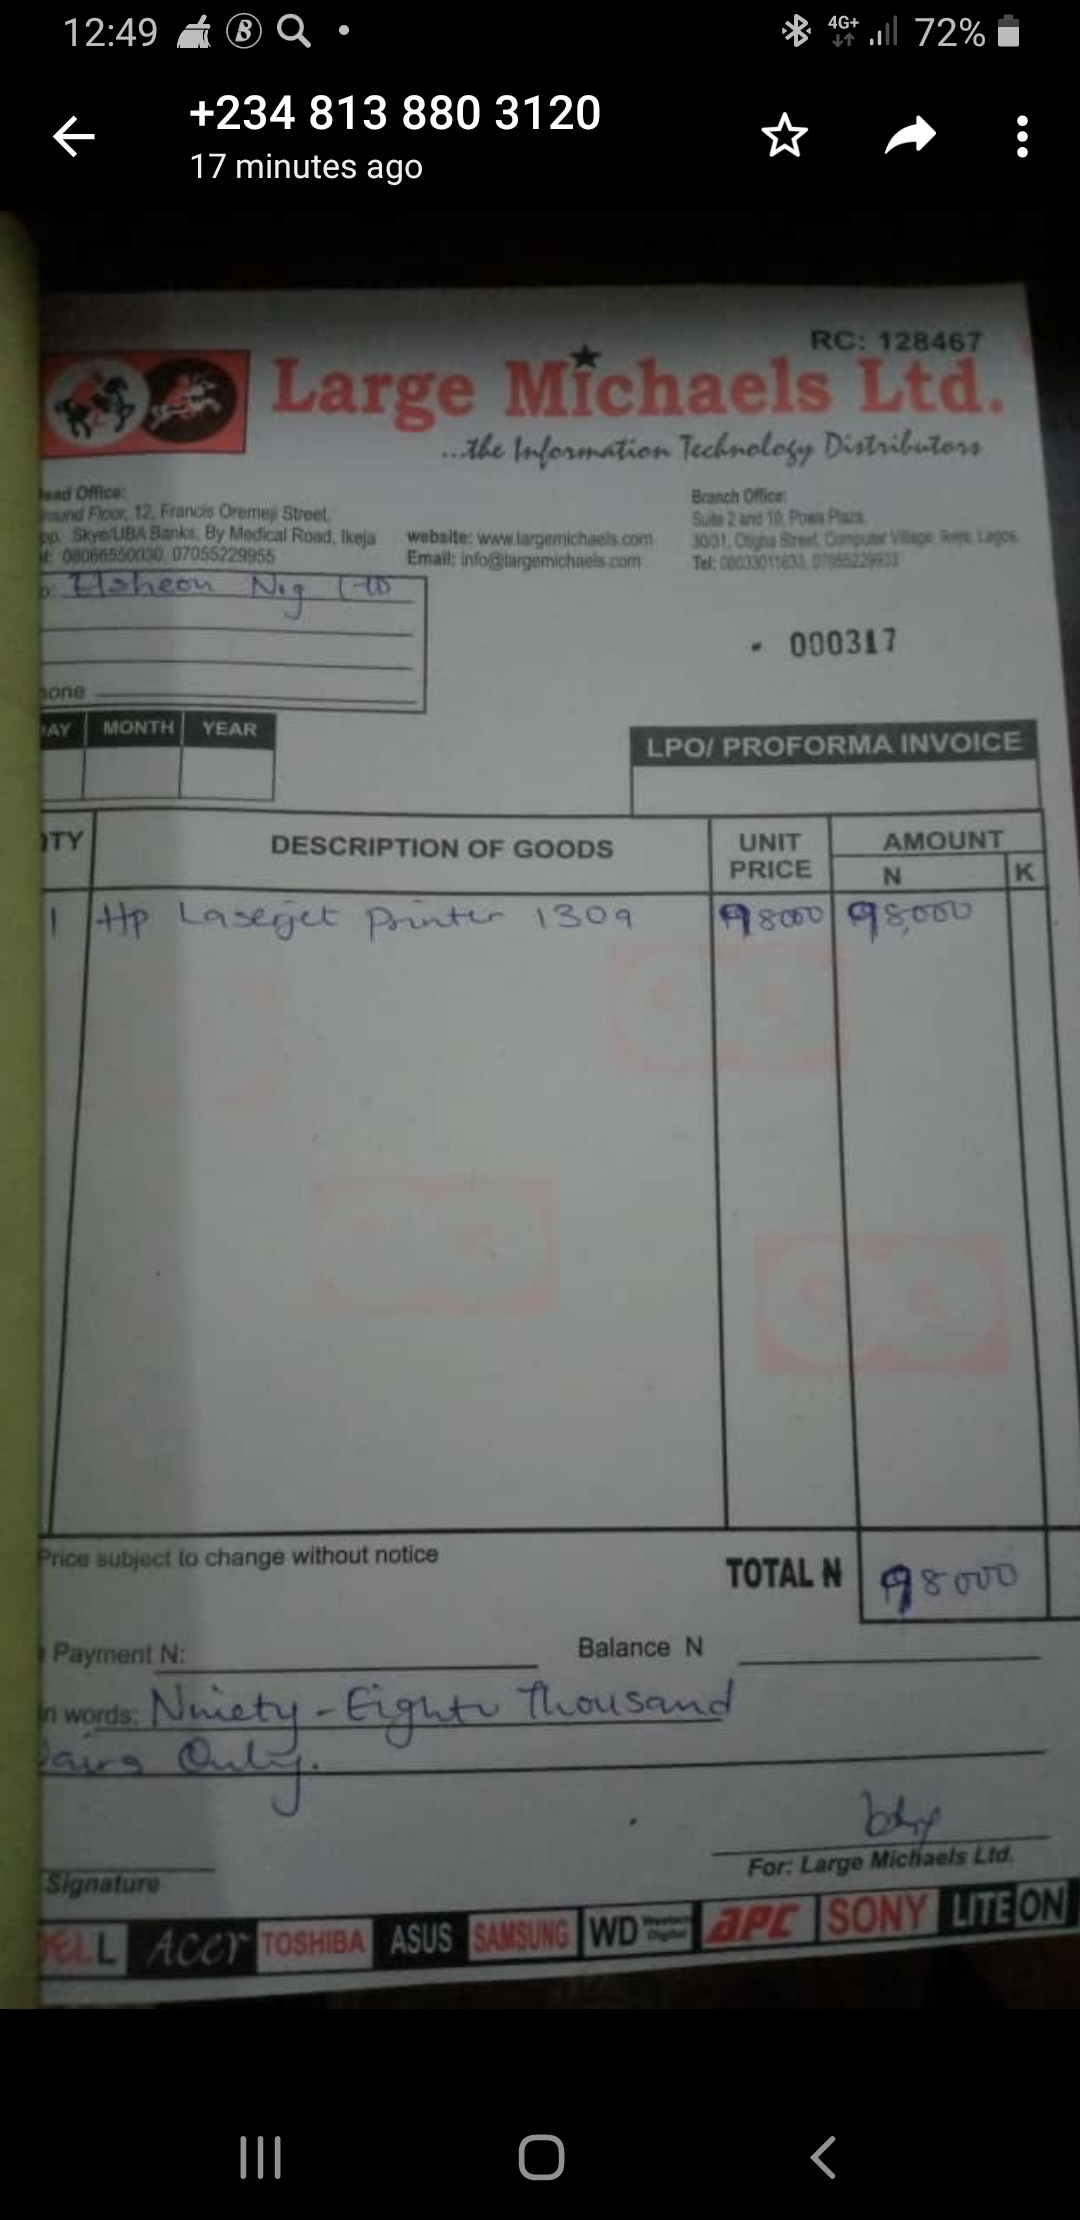 12:49 4G+ 72%
+234 813 880 3120
17 minutes ago
RC: 128467
Large Michaels Ltd.
...the Information Technology Distributors
ead Office:
ound Floor, 12, Francis Oremeji Street,
op. Skye/UBA Banks, By Medical Road, Ikeja
08066550030, 07055229955
website: www.largemichaels.com
Email: info@largemichaels.com
Branch Office:
Suite 2 and 10, Powa Plaza,
30/31, Otigba Street, Computer Village Ikeja, Lagos
Tel:
Nig Ltd
000317
one
AY MONTH YEAR
LPO/ PROFORMA INVOICE
TY DESCRIPTION OF GOODS UNIT PRICE AMOUNT
N K
1 Hp Laserjet Printer 98000 98,000
Price subject to change without notice
TOTAL N 98000
Payment N: Balance N
in words: Ninety-Eight Thousand
aira Only.
Signature
For: Large Michaels Ltd.
DELL acer TOSHIBA ASUS SAMSUNG WD Western Digital APC SONY LITEON